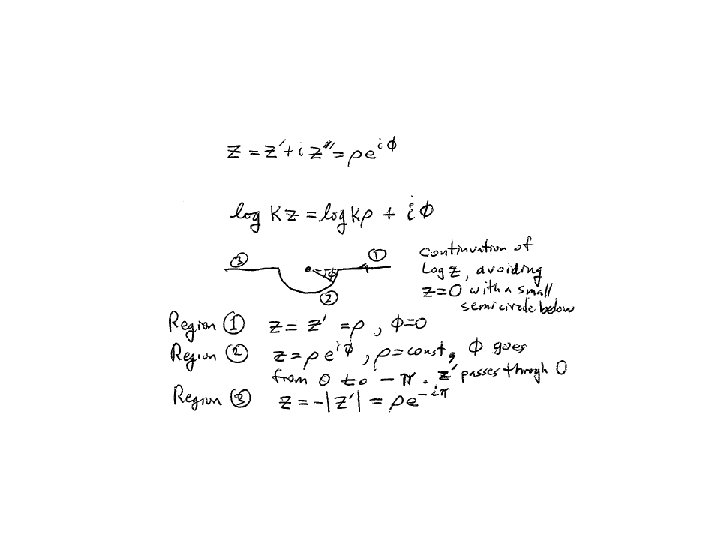 z = z' + i z'' = ρe^{iφ}
log Kz = log Kρ + iφ
③ φ ① ②
continuation of
Log z, avoiding
z=0 with a small
semicircle below
Region ① z = z' = ρ, φ=0
Region ② z = ρe^{iφ}, ρ=const, φ goes
from 0 to -π. z' passes through 0
Region ③ z = -|z'| = ρe^{-iπ}